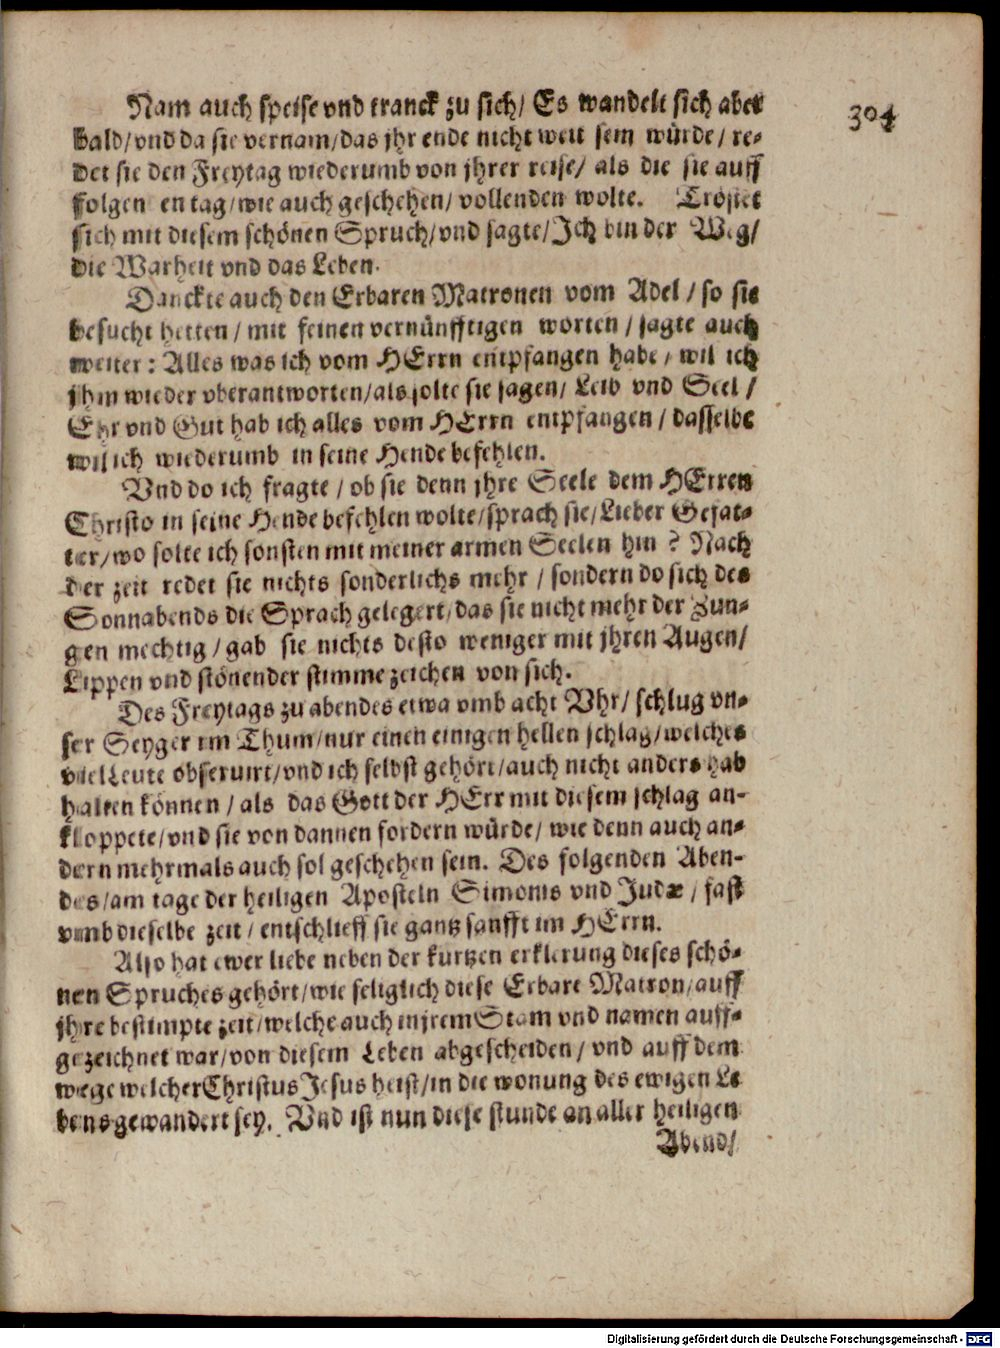 Nam auch speise vnd tranck zu sich/ Es wandelt sich aber
bald/vnd da sie vernam/das jhr ende nicht weit sein würde/ re-
det sie den Freytag wiederumb von jhrer reise/ als die sie auff
folgen en tag/wie auch geschehen/ vollenden wolte. Tröstet
sich mit diesem schönen Spruch/vnd sagte/Jch bin der Weg/
die Warheit vnd das Leben.
Danckte auch den Erbaren Matronen vom Adel / so sie
besucht hetten / mit feinen vernünfftigen worten / sagte auch
weiter: Alles was ich vom HErrn entpfangen habe / wil ich
jhm wieder vberantworten/als solte sie sagen/ Leib vnd Seel /
Ehr vnd Gut hab ich alles vom HErrn entpfangen / dasselbe
wil ich wiederumb in seine Hende befehlen.
Vnd do ich fragte / ob sie denn jhre Seele dem HErren
Christo in seine Hende befehlen wolte/sprach sie/Lieber Gefat-
ter/wo solte ich sonsten mit meiner armen Seelen hin ? Nach
der zeit redet sie nichts sonderlichs mehr / sondern do sich des
Sonnabends die Sprach gelegert/das sie nicht mehr der Zun-
gen mechtig / gab sie nichts desto weniger mit jhren Augen/
Lippen vnd stönender stimme zeichen von sich.
Des Freytags zu abendes etwa vmb acht Vhr/ schlug vn-
ser Seyger im Thum/nur einen einigen hellen schlag/welches
viel Leute obseruirt/vnd ich selbst gehört/auch nicht anders hab
halten können / als das Gott der HErr mit diesem schlag an-
kloppete/vnd sie von dannen fordern würde/ wie denn auch an-
dern mehrmals auch sol geschehen sein. Des folgenden Aben-
des/am tage der heiligen Aposteln Simonis vnd Judæ / fast
vmb dieselbe zeit / entschlieff sie gantz sanfft im HErrn.
Also hat ewer liebe neben der kurtzen erklerung dieses schö-
nen Spruches gehört/wie seliglich diese Erbare Matron/auff
jhre bestimpte zeit/welche auch in jrem Stam vnd namen auff-
gezeichnet war/von diesem Leben abgescheiden / vnd auff dem
wege welcher Christus Jesus heist/in die wonung des ewigen Le
bens gewandert sey. Vnd ist nun diese stunde an aller heiligen
Abend/
304
Digitalisierung gefördert durch die Deutsche Forschungsgemeinschaft - DFG